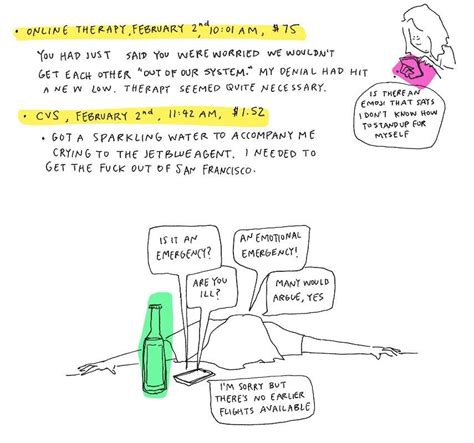 • ONLINE THERAPY, FEBRUARY 2nd, 10:01 AM, $75
YOU HAD JUST SAID YOU WERE WORRIED WE WOULDN'T
GET EACH OTHER "OUT OF OUR SYSTEM." MY DENIAL HAD HIT
A NEW LOW. THERAPY SEEMED QUITE NECESSARY.
• CVS, FEBRUARY 2nd, 11:42 AM, $1.52
• GOT A SPARKLING WATER TO ACCOMPANY ME
CRYING TO THE JETBLUE AGENT. I NEEDED TO
GET THE FUCK OUT OF SAN FRANCISCO.
IS THERE AN
EMOJI THAT SAYS
I DON'T KNOW HOW
TO STAND UP FOR
MYSELF
IS IT AN
EMERGENCY?
AN EMOTIONAL
EMERGENCY!
ARE YOU
ILL?
MANY WOULD
ARGUE, YES
I'M SORRY BUT
THERE'S NO EARLIER
FLIGHTS AVAILABLE